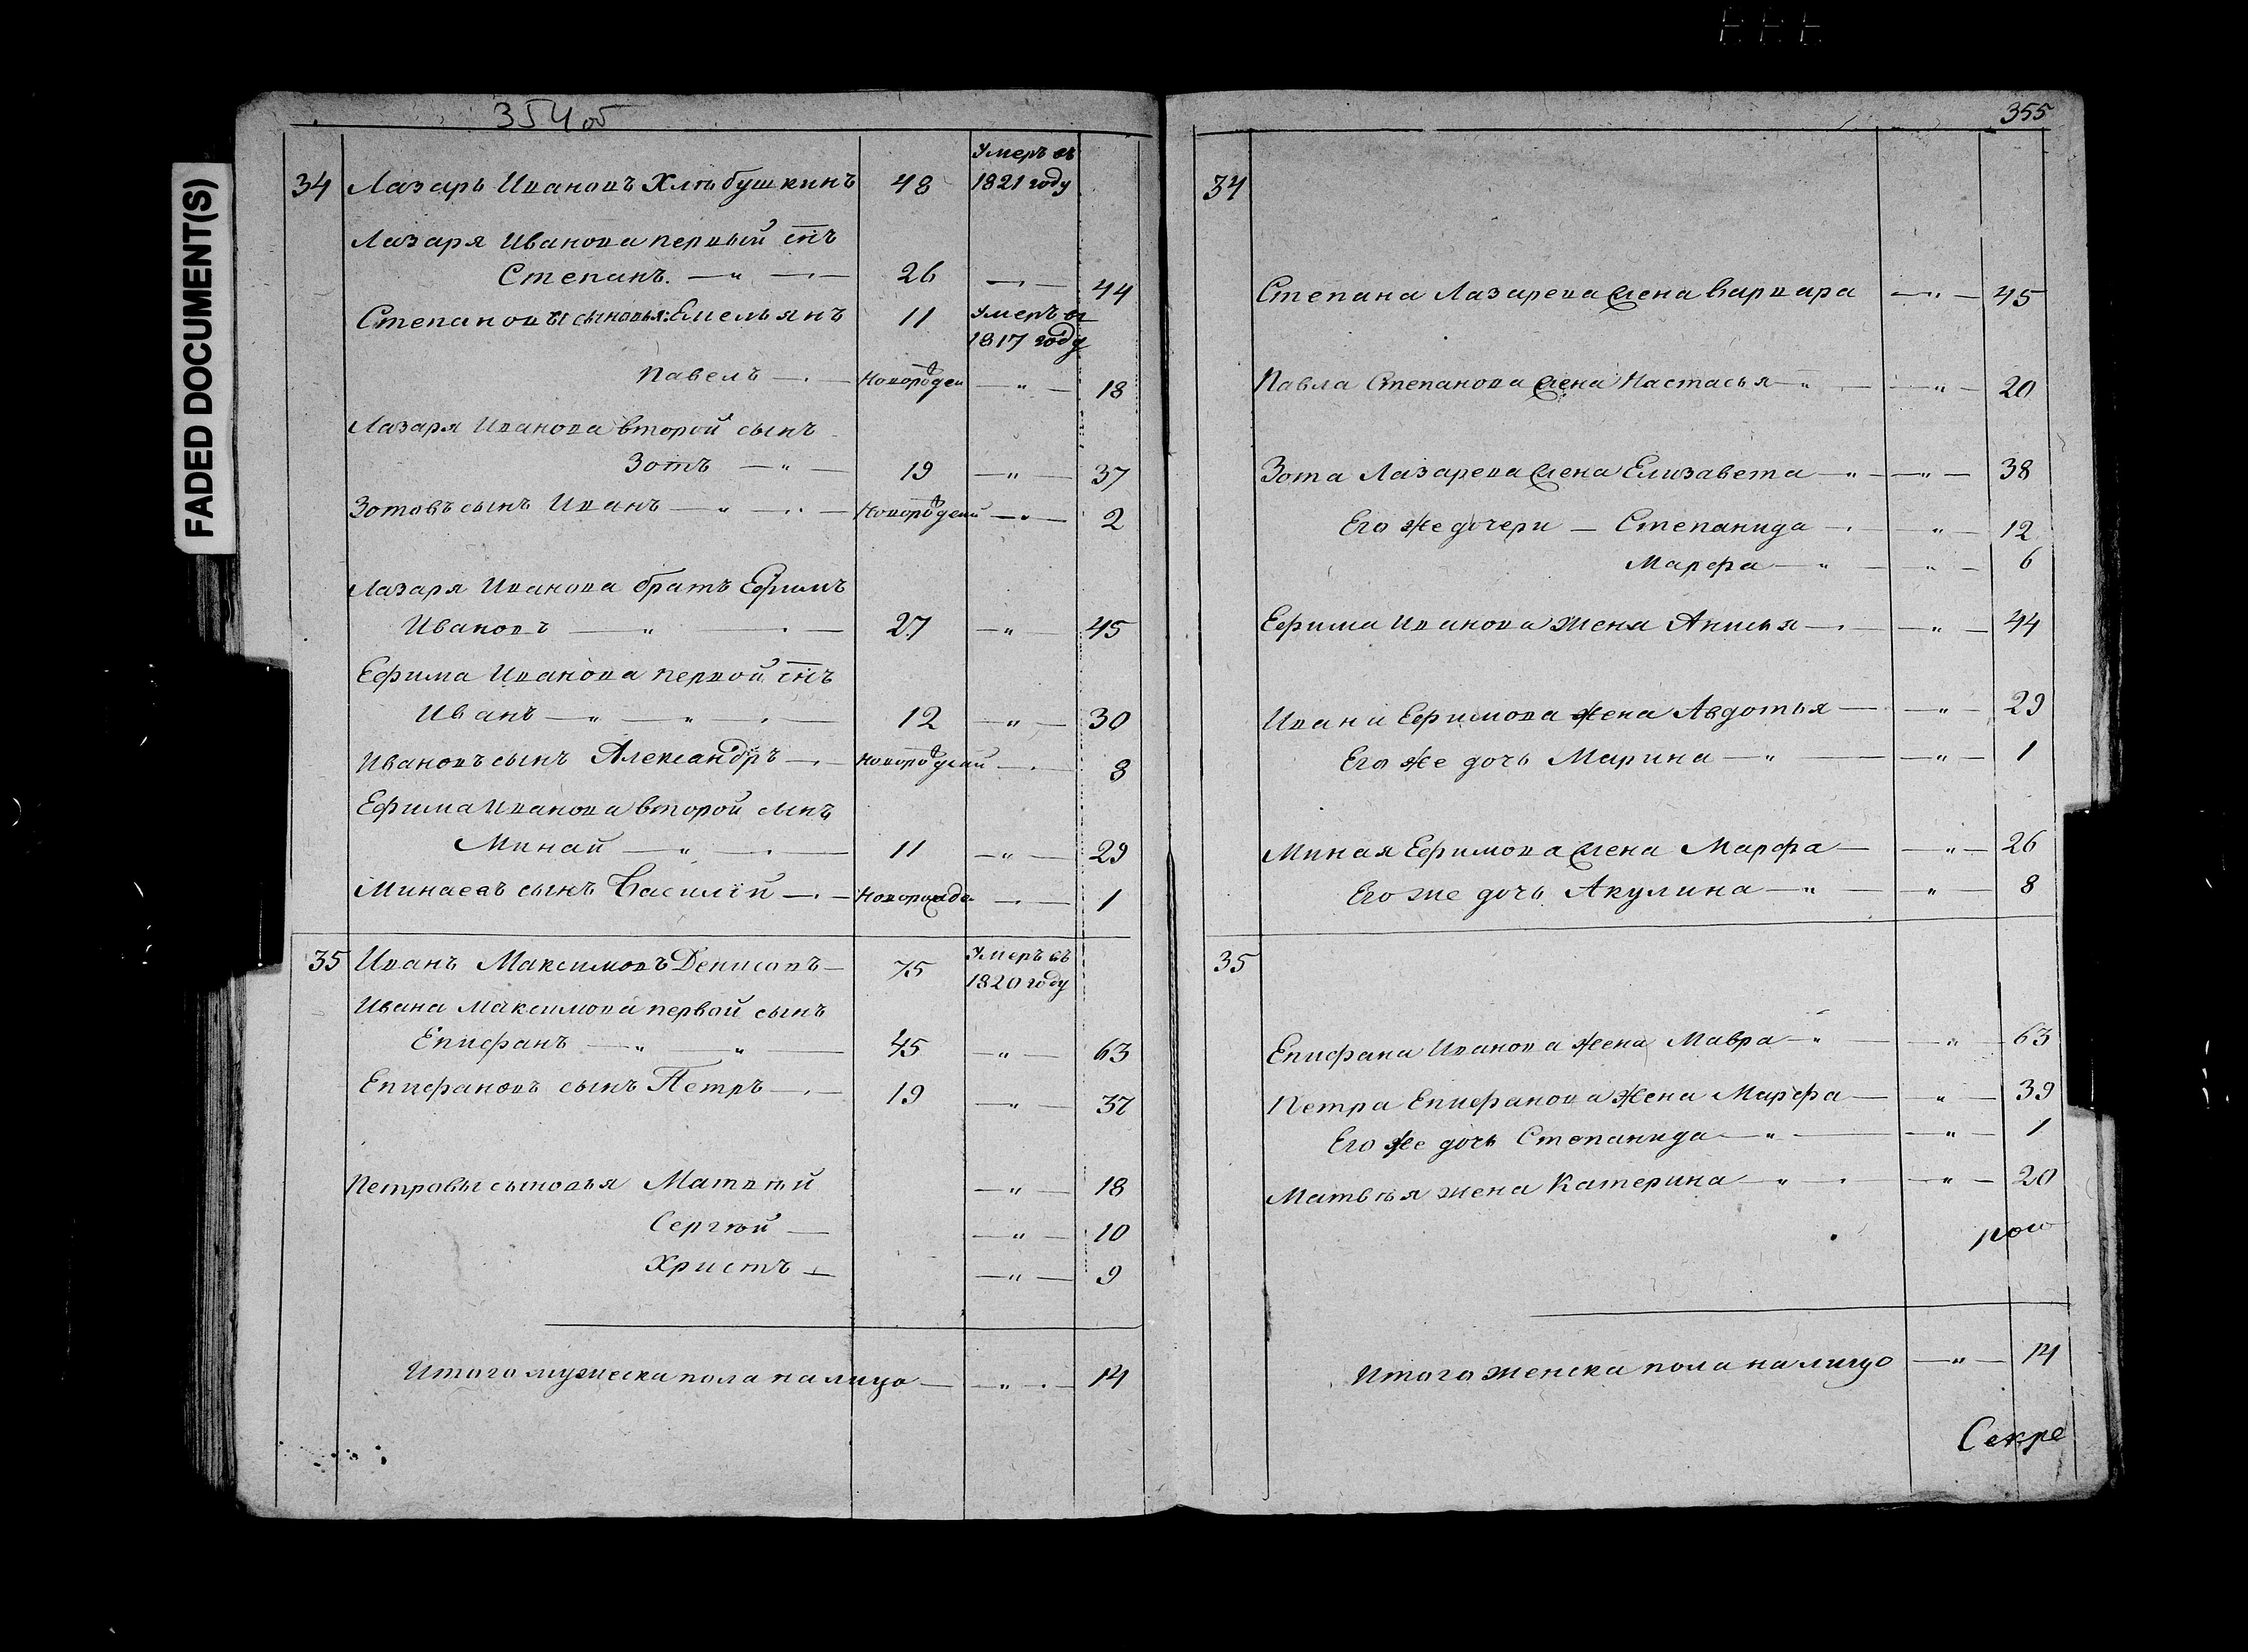 FADED DOCUMENT(S)
354 об
34 Лазарь Ивановъ Хлѣбушкинъ 48 Умеръ въ 1821 году
Лазаря Иванова первый сн҃ъ
Степанъ 26 44
Степановы сыновья: Емельянъ 11 Умеръ въ 1817 году
Павелъ Новорожден 18
Лазаря Иванова второй сынъ
Зотъ 19 37
Зотовъ сынъ Иванъ Новорожденй 2
Лазаря Иванова братъ Ефимъ
Ивановъ 27 45
Ефима Иванова первой сн҃ъ
Иванъ 12 30
Ивановъ сынъ Александръ Новорожденй 3
Ефима Иванова второй сынъ
Минай 11 29
Минаевъ сынъ Василій Новорожде 1
35 Иванъ Максимовъ Денисовъ 75 Умеръ въ 1820 году
Ивана Максимова первой сынъ
Епифанъ 45 63
Епифановъ сынъ Петръ 19 37
Петровы сыновья Матвѣй 18
Сергѣй 10
Христъ 9
Итого мужеска пола на лицо 14
355
34
Степана Лазарева жена Варвара 45
Павла Степанова жена Настасья 20
Зота Лазарева жена Елизавета 38
Его же дочери Степанида 12
Марфа 6
Ефима Иванова жена Анисья 44
Ивана Ефимова жена Авдотья 29
Его же дочь Марина 1
Миная Ефимова жена Марфа 26
Его же дочь Акулина 8
35
Епифана Иванова жена Мавра 63
Петра Епифанова жена Марфа 39
Его же дочь Степанида 1
Матвѣя жена Катерина 20
Итого женска пола на лицо 14
Секре